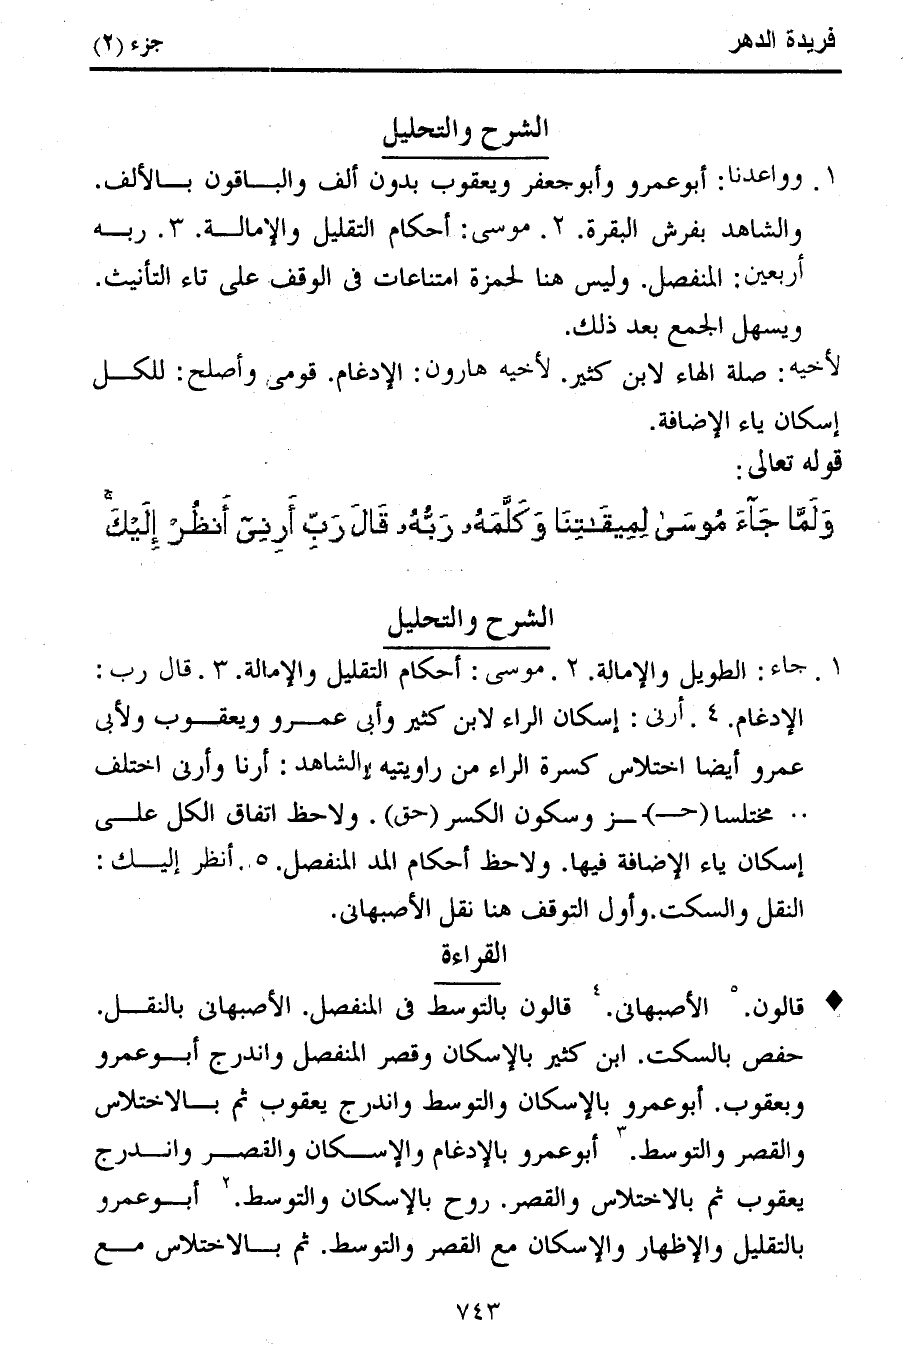 فريدة الدهر
جزء (٢)
الشرح والتحليل
١. وواعدنا: أبوعمرو وأبوجعفر ويعقوب بدون ألف والباقون بالألف.
والشاهد بفرش البقرة. ٢. موسى: أحكام التقليل والإمالة. ٣. ربه
أربعين: المنفصل. وليس هنا لحمزة امتناعات فى الوقف على تاء التأنيث.
ويسهل الجمع بعد ذلك.
لأخيه: صلة الهاء لابن كثير. لأخيه هارون: الإدغام. قومى وأصلح: للكل
إسكان ياء الإضافة.
قوله تعالى:
وَلَمَّا جَآءَ مُوسَىٰ لِمِيقَـٰتِنَا وَكَلَّمَهُۥ رَبُّهُۥ قَالَ رَبِّ أَرِنِىٓ أَنظُرْ إِلَيْكَ ۚ
الشرح والتحليل
١. جاء: الطويل والإمالة. ٢. موسى: أحكام التقليل والإمالة. ٣. قال رب:
الإدغام. ٤. أرنى: إسكان الراء لابن كثير وأبى عمرو ويعقوب ولأبى
عمرو أيضا اختلاس كسرة الراء من راويتيه والشاهد: أرنا وأرنى اختلف
.. مختلسا (حـ)ـز وسكون الكسر (حق). ولاحظ اتفاق الكل على
إسكان ياء الإضافة فيها. ولاحظ أحكام المد المنفصل. ٥. أنظر إليك:
النقل والسكت. وأول التوقف هنا نقل الأصبهانى.
القراءة
♦ قالون. ٥ الأصبهانى. ٤ قالون بالتوسط فى المنفصل. الأصبهانى بالنقل.
حفص بالسكت. ابن كثير بالإسكان وقصر المنفصل واندرج أبوعمرو
وبعقوب. أبوعمرو بالإسكان والتوسط واندرج يعقوب ثم بالاختلاس
والقصر والتوسط. ٣ أبوعمرو بالإدغام والإسكان والقصر واندرج
يعقوب ثم بالاختلاس والقصر. روح بالإسكان والتوسط. ٢ أبوعمرو
بالتقليل والإظهار والإسكان مع القصر والتوسط. ثم بالاختلاس مع
٧٤٣